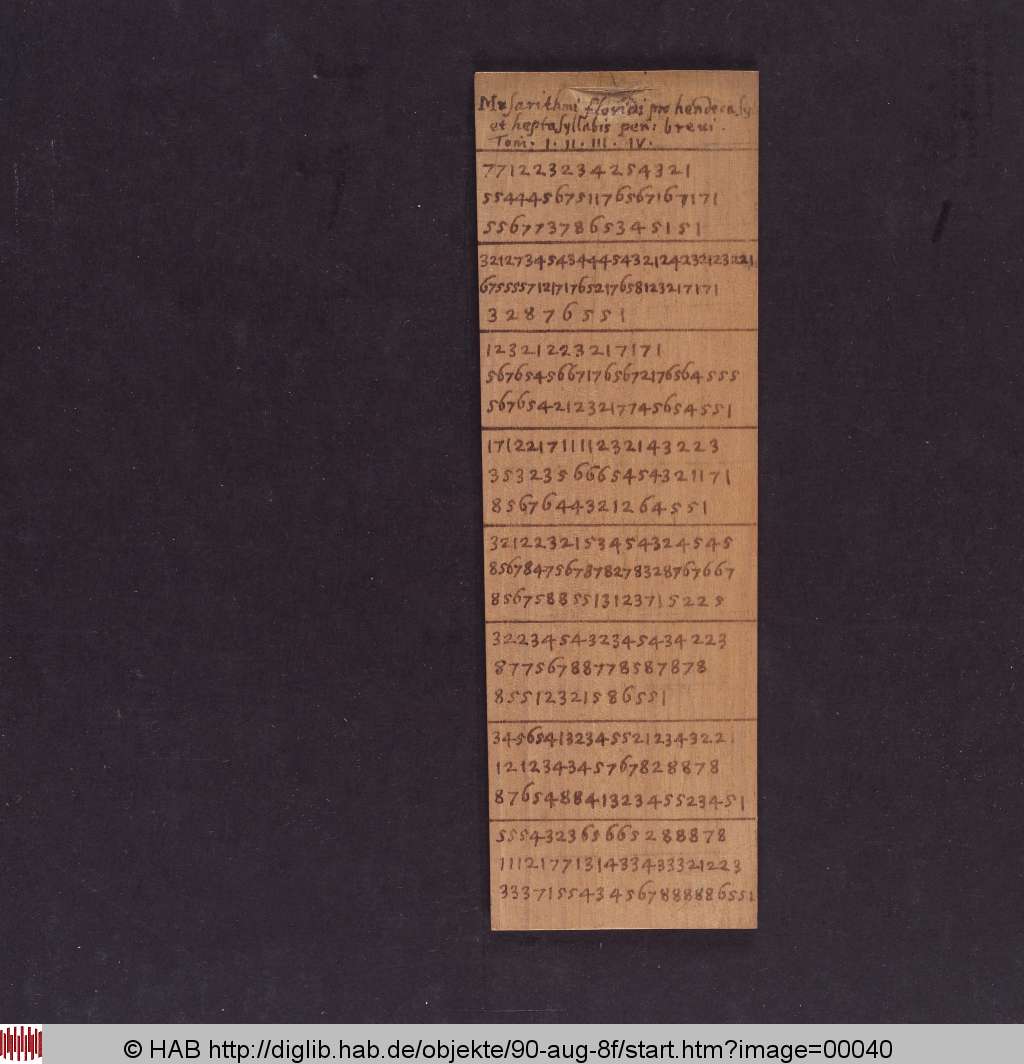 Musarithmi floridi pro hendecasy
et heptasyllabis pen: breui.
Tom. I. II. III. IV.
7 7 1 2 2 3 2 3 4 2 5 4 3 2 1
5 5 4 4 4 5 6 7 5 1 1 7 6 5 6 7 1 6 7 1 7 1
5 5 6 7 7 3 7 8 6 5 3 4 5 1 5 1
3 2 1 2 7 3 4 5 4 3 4 4 4 5 4 3 2 1 2 4 2 3 2 1 2 3 2 2 1
6 7 5 5 5 5 7 1 2 1 7 1 7 6 5 2 1 7 6 5 8 1 2 3 2 1 7 1 7 1
3 2 8 7 6 5 5 1
1 2 3 2 1 2 2 2 3 2 1 7 1 7 1
5 6 7 6 5 4 5 6 6 7 1 7 6 5 6 7 2 1 7 6 5 6 4 5 5 5
5 6 7 6 5 4 2 1 2 3 2 1 7 7 4 5 6 5 4 5 5 1
1 7 1 2 2 1 7 1 1 1 1 2 3 2 1 4 3 2 2 3
3 5 3 2 3 5 6 6 6 5 4 5 4 3 2 1 1 7 1
8 5 6 7 6 4 4 3 2 1 2 6 4 5 5 1
3 2 1 2 2 3 2 1 5 3 4 5 4 3 2 4 5 4 5
8 5 6 7 8 4 7 5 6 7 8 7 8 2 7 8 3 2 8 7 6 7 6 6 7
8 5 6 7 5 8 8 5 5 1 3 1 2 3 7 1 5 2 2 5
3 2 2 3 4 5 4 3 2 3 4 5 4 3 4 2 2 3
8 7 7 5 6 7 8 8 7 7 8 5 8 7 8 7 8
8 5 5 1 2 3 2 1 5 8 6 5 5 1
3 4 5 6 5 4 1 3 2 3 4 5 5 2 1 2 3 4 3 2 2
1 2 1 2 3 4 3 4 5 7 6 7 8 2 8 8 7 8
8 7 6 5 4 8 8 4 1 3 2 3 4 5 5 2 3 4 5 1
5 5 5 4 3 2 3 6 5 6 6 5 2 8 8 8 7 8
1 1 1 2 1 7 7 1 3 1 4 3 3 4 3 3 3 2 1 2 2 3
3 3 3 7 1 5 5 4 3 4 5 6 7 8 8 8 8 8 6 5 5 1
© HAB http://diglib.hab.de/objekte/90-aug-8f/start.htm?image=00040